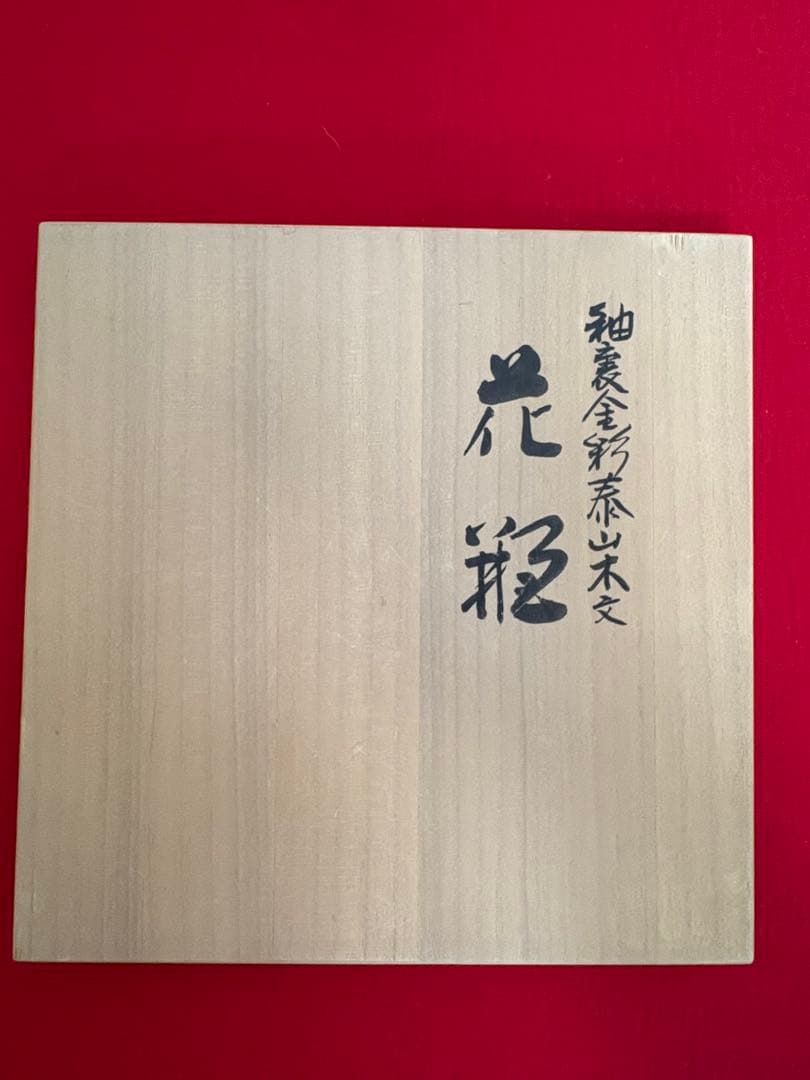 釉裏金彩泰山木文
花瓶